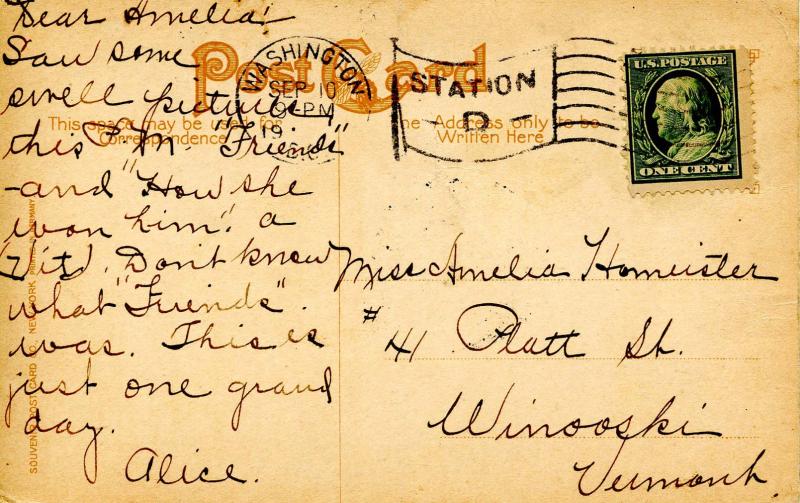 Dear Amelia!
Saw some
swell pictures
this P.M. "Friends"
-and "How she
won him". a
Vitz). Don't know
what "Friends".
was. This is
just one grand
day.
Alice.
Post Card
This space may be used for
Correspondence
the Address only to be
Written Here
WASHINGTON
SEP 10
9-PM
19
D.C.
STATION
B
U.S. POSTAGE
ONE CENT
Miss Amelia Homeister
# 41 Platt St.
Winooski
Vermont.
SOUVENIR POST CARD CO. NEW YORK PRINTED IN GERMANY